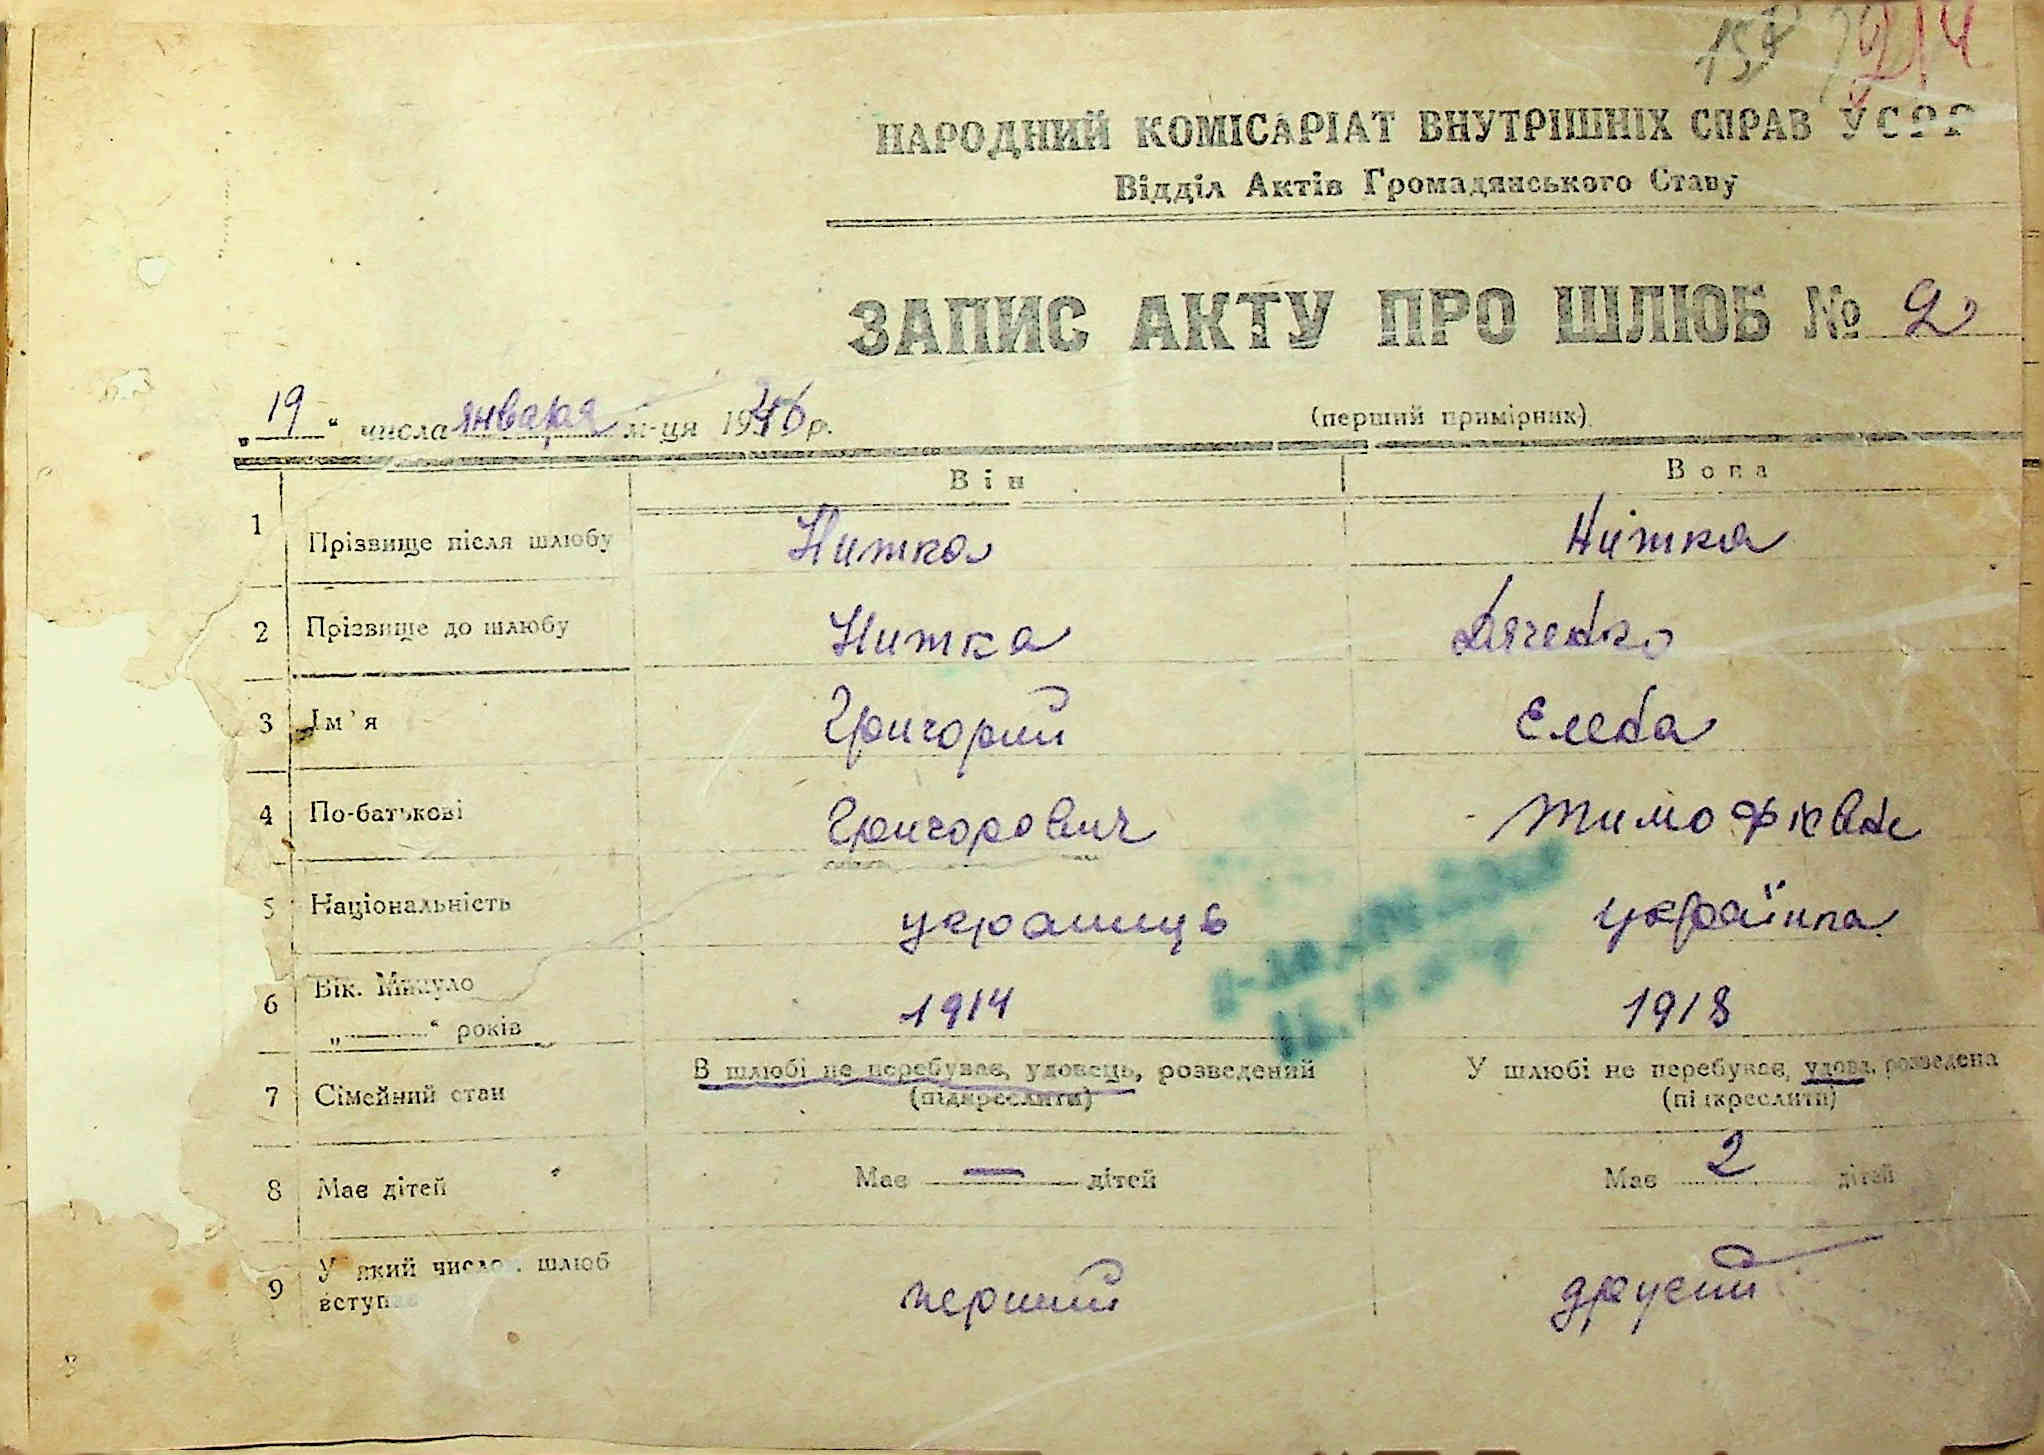 214
НАРОДНИЙ КОМІСАРІАТ ВНУТРІШНІХ СПРАВ УСРР
Відділ Актів Громадянського Стану
ЗАПИС АКТУ ПРО ШЛЮБ № 2
„19“ числа января м-ця 1946 р. (перший примірник)
Він Вона
1 Прізвище після шлюбу Нитка Нитка
2 Прізвище до шлюбу Нитка Дяченко
3 Ім'я Григорий Єлена
4 По-батькові Григорович Тимофієвна
5 Національність українць українка
6 Вік. Минуло 1914 1918
„ “ років
7 Сімейний стан В шлюбі не перебуває, удовець, розведений У шлюбі не перебуває, удова, розведена
(підкреслити) (підкреслити)
8 Має дітей Має — дітей Має 2 дітей
9 У який числом шлюб перший другий
вступає